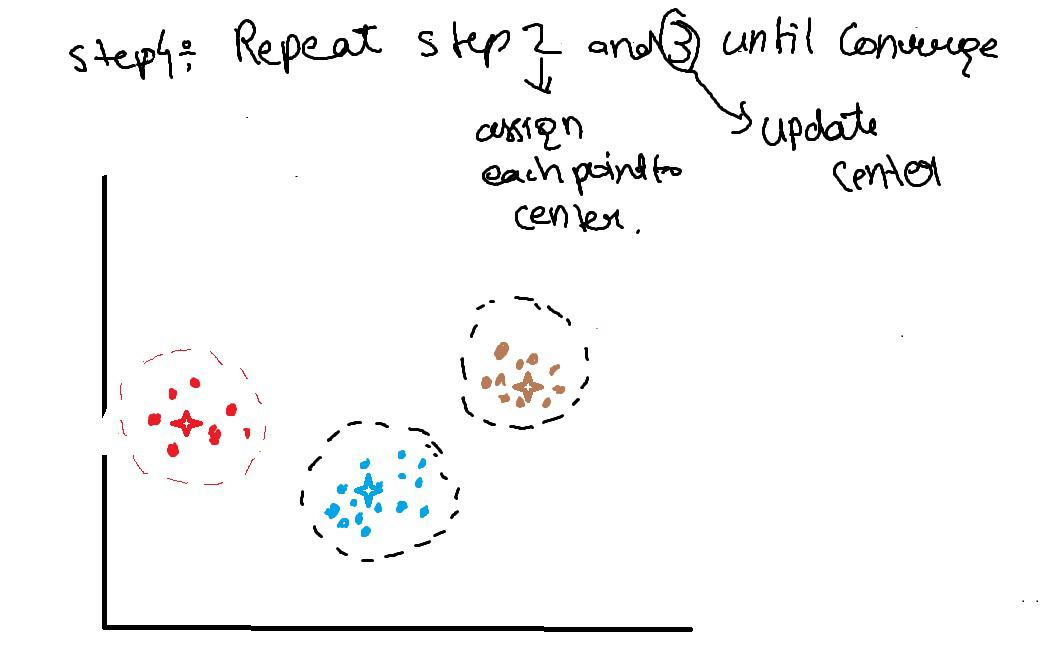 step4: Repeat step 2 and 3 until Converge
assign
each point to
center.
update
center